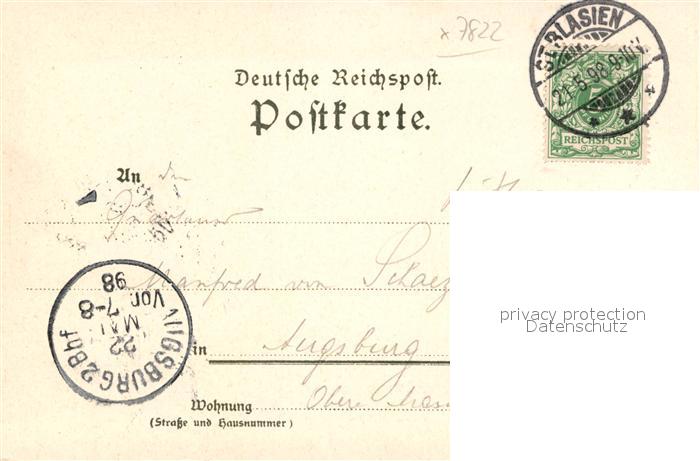 x 7822
ST. BLASIEN
21.5.98.9-10V.
5
REICHSPOST
Deutsche Reichspost.
Postkarte.
An den
Manfred von Schaez
in Augsburg
Obere
Wohnung
(Straße und Hausnummer)
AUGSBURG 2 Bhf
22
MAI
Vor. 7-8
98
privacy protection
Datenschutz